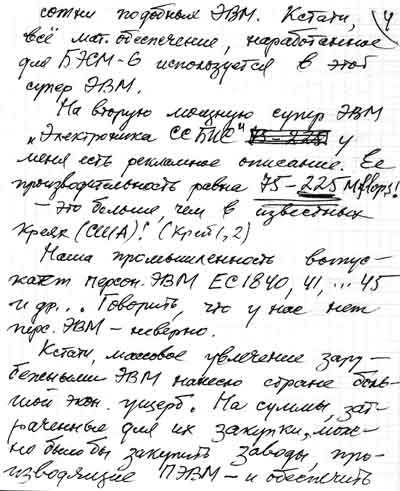 сотни подобных ЭВМ. Кстати, 4
всё мат. обеспечение, наработанное
для БЭСМ-6 используется в этой
супер ЭВМ.
На вторую мощную супер ЭВМ
"Электроника ССБИС" В-225 у
меня есть рекламное описание. Ее
производительность равна 75-225 Mflops!
- это больше, чем в известных
Крэях (США)! (Крей 1, 2)
Наша промышленность выпус-
кает персон. ЭВМ ЕС1840, 41, ... 45
и др... Говорить, что у нас нет
перс. ЭВМ - неверно.
Кстати, массовое увлечение зару-
бежными ЭВМ нанесло стране боль-
шой экон. ущерб. На суммы, зат-
раченные для их закупки, мож-
но было бы закупить заводы, про-
изводящие ПЭВМ - и обеспечить